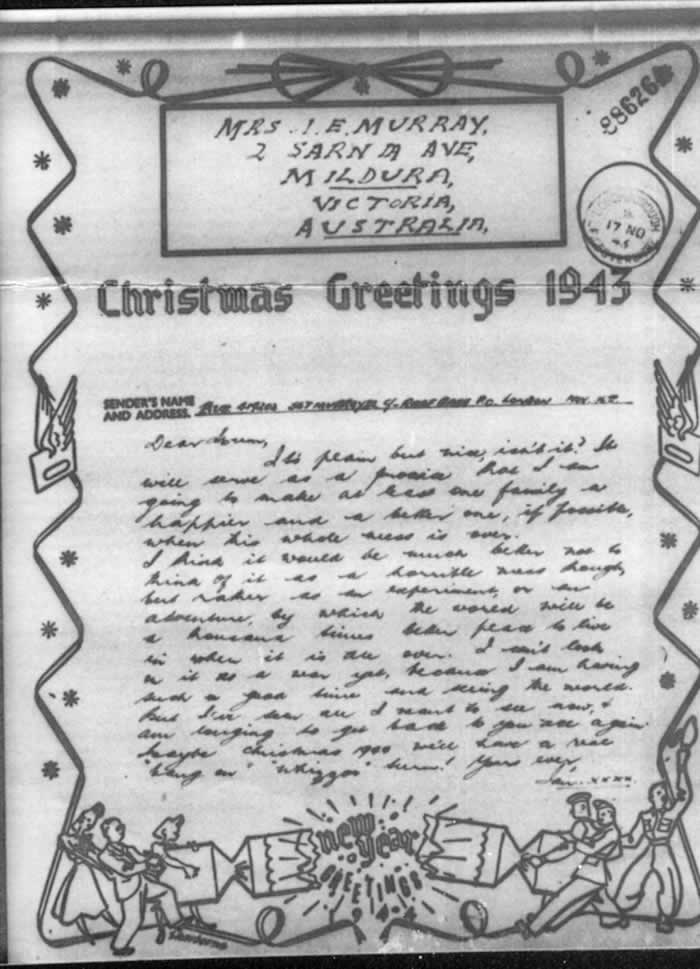 28626
MRS. I.E. MURRAY,
2 SARNIA AVE,
MILDURA,
VICTORIA,
AUSTRALIA.
17 NO
43
Christmas Greetings 1943
SENDER'S NAME
AND ADDRESS.
LONDON
Dear Mum,
Its plain but nice, isn't it? It
will serve as a promise that I am
going to make at least one family a
happier and a better one, if possible,
when this whole mess is over.
I think it would be much better not to
think of it as a horrible mess though,
but rather as an experiment, or an
adventure, by which the world will be
a thousand times better place to live
in when it is all over. I can't look
on it as a war yet, because I am having
such a good time and seeing the world.
But I've seen all I want to see now, &
am longing to get back to you all again.
Maybe Christmas 1944 will have a real
"bang on" "whizzo" turn! Yours ever,
xxxx.
new
year
GREETINGS
1944